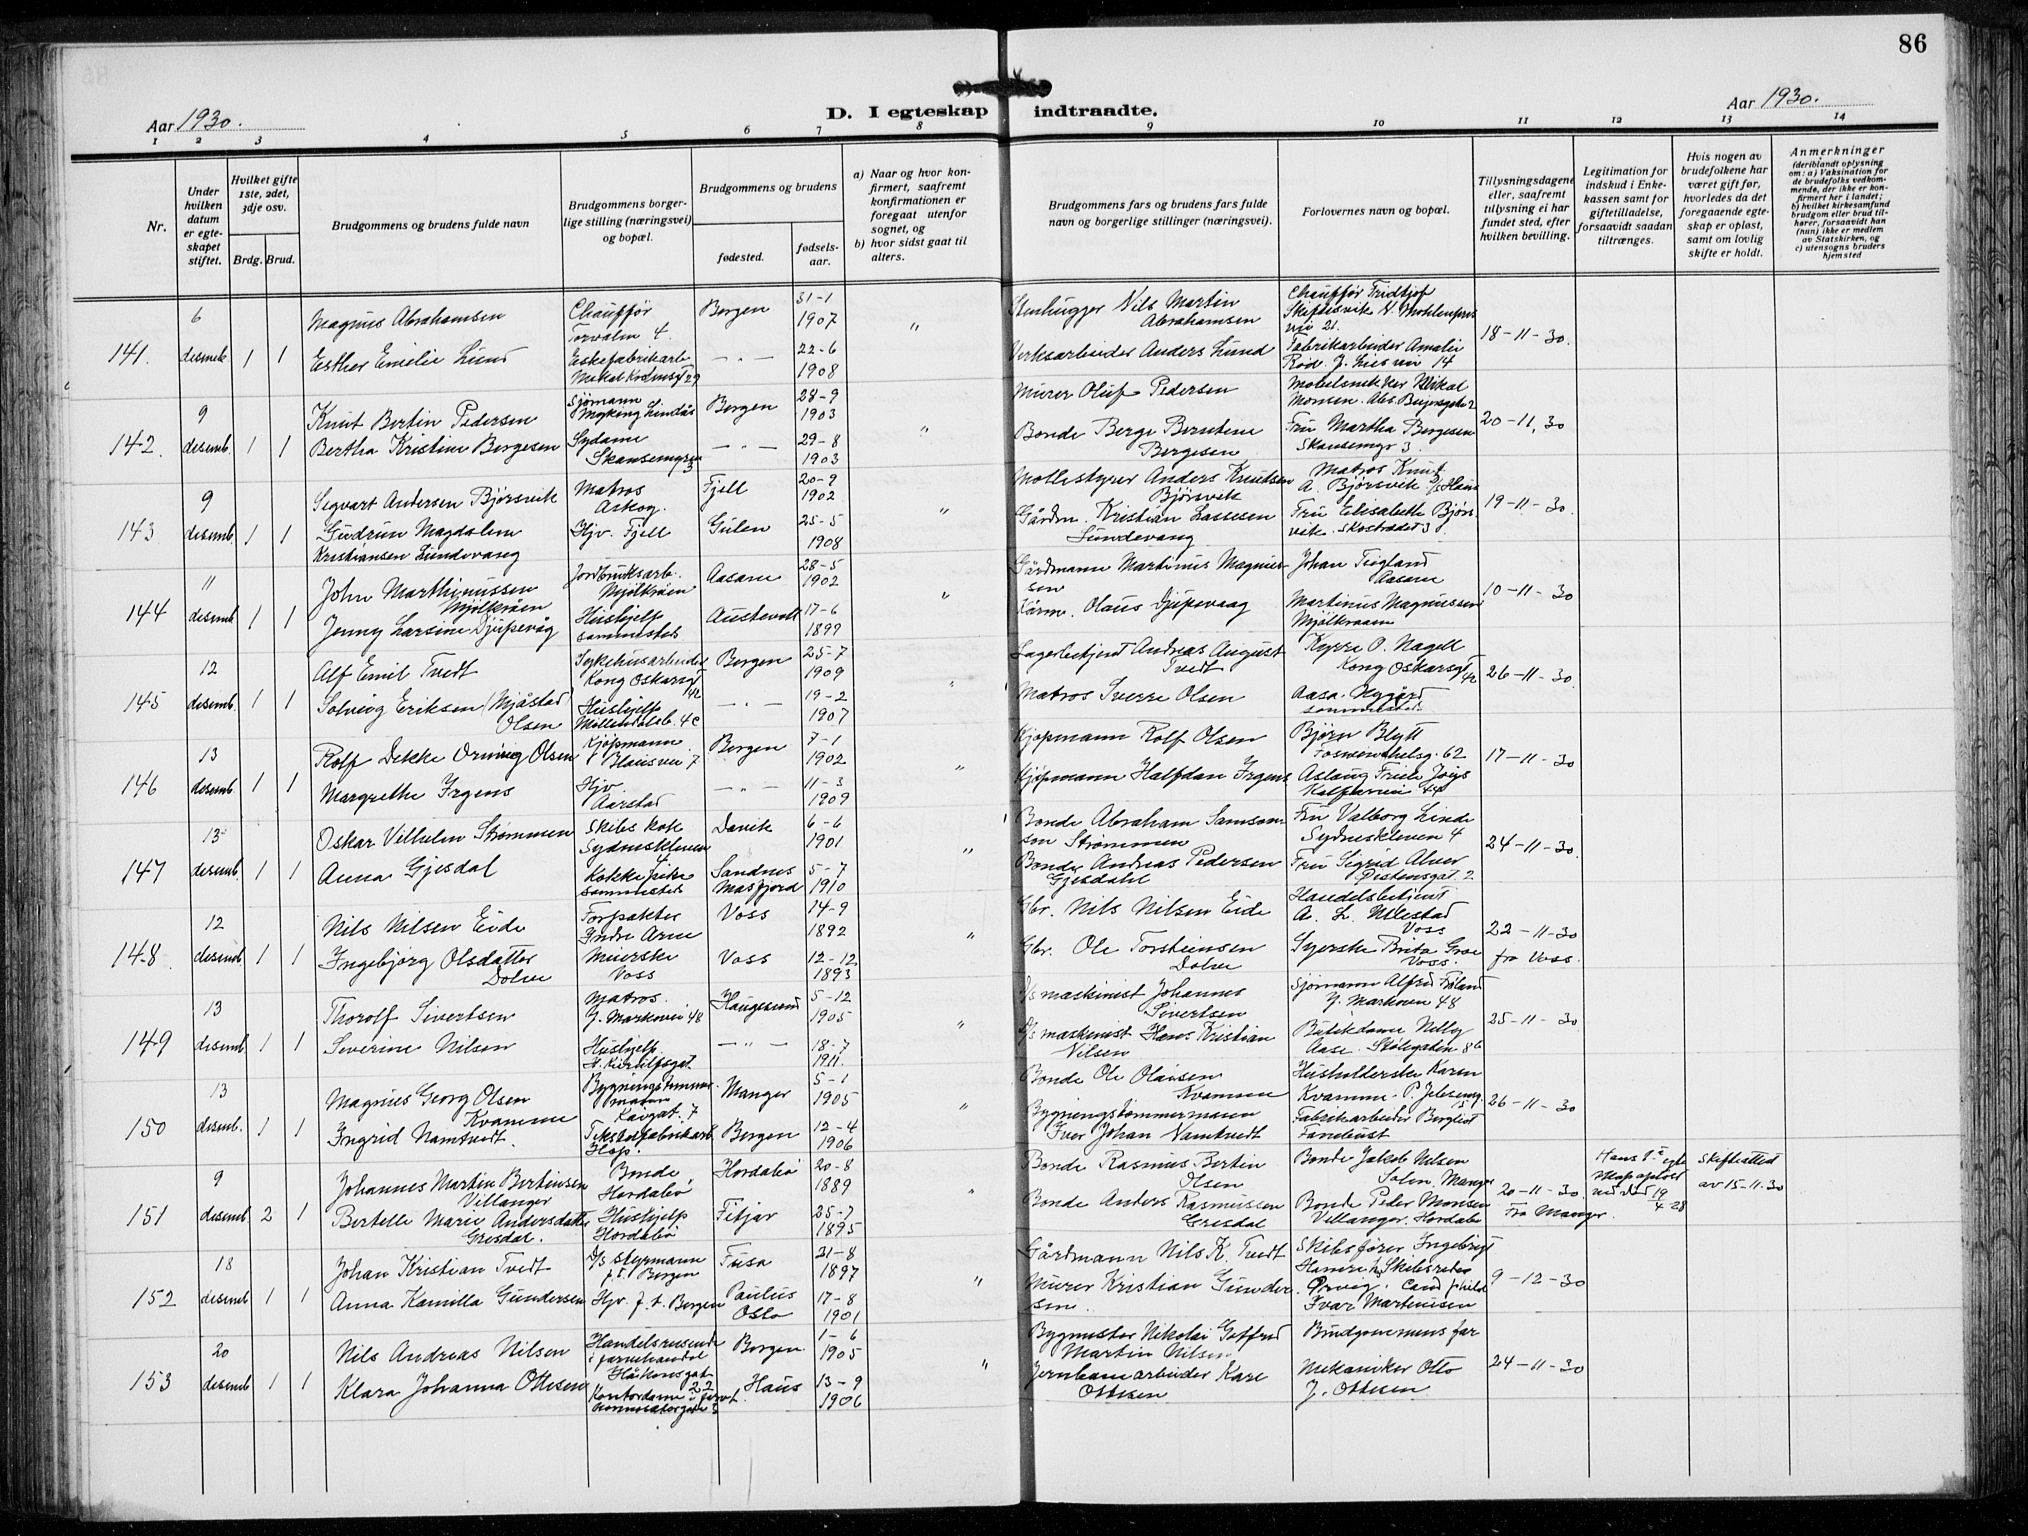 86
Aar 1930.
D. I egteskap indtraadte.
Aar 1930.
1 2 3 4 5 6 7 8 9 10 11 12 13 14
Nr.
Under hvilken datum er egteskapet stiftet.
Hvilket gifte 1ste, 2det, 3dje osv.
Brdg. Brud.
Brudgommens og brudens fulde navn
Brudgommens borgerlige stilling (næringsvei) og bopæl.
Brudgommens og brudens
fødested.
fødselsaar.
a) Naar og hvor konfirmert, saafremt konfirmationen er foregaat utenfor sognet, og
b) hvor sidst gaat til alters.
Brudgommens fars og brudens fars fulde navn og borgerlige stillinger (næringsvei).
Forlovernes navn og bopæl.
Tillysningsdagene eller, saafremt tillysning ei har fundet sted, efter hvilken bevilling.
Legitimation for indskud i Enkekassen samt for giftetilladelse, forsaavidt saadan tiltrænges.
Hvis nogen av brudefolkene har været gift før, hvorledes da det foregaaende egteskap er opløst, samt om lovlig skifte er holdt.
Anmerkninger (deriblandt oplysning om: a) Vaksination for de brudefolks vedkommende, der ikke er konfirmert her i landet; b) hvilket kirkesamfund brudgom eller brud tilhører, forsaavidt han (hun) ikke er medlem av Statskirken, og c) utensogns bruders hjemsted
141. 6 desemb. 1 1
Magnus Abrahamsen
Chauffør Torvalm 4.
Bergen 31-1 1907
Stenhugger Nils Martin Abrahamsen
Chauffør Fridtjof
18-11-30.
Esther Emilie Lund
Eskefabrikarb.
— „ — 22-6 1908
Verksarbeider Anders Lund
Fabrikarbeider Amalie Rød. J. Lies vei 14
142. 9 desemb. 1 1
Knut Bertin Pedersen
Sjømann Myking Lindås
Bergen 28-9 1903
Murer Oluf Pedersen
Møbelsnekker Mikal Monsen
20-11,30
Bertha Kristine Bergesen
Sydame Skansemyren 3
— „ — 29-8 1903
Bonde Berge Berntine Bergesen
Fru Martha Bergesen Skansemyr 3.
143 9 desemb. 1 1
Sigvart Andersen Bjørsvik
Matros Askøy.
Fjell 20-9 1902
Møllestyrer Anders Knutsen Bjørsvik
Matros Knut A. Bjørsvik D/S Haus
19-11-30.
Gudrun Magdalene Kristiansen Lundevang
Hjv. Fjell
Gulen 25-5 1908
Gårdm. Kristian Lassesen Lundevang
Fru Elisabeth Bjørsvik
144 11 desemb. 1 1
John Marthinussen Mjölkråen
Jordbruksarb. Mjölkråen
Aasane 28-5 1902
Gårdmann Martinus Magnussen
Johan Teigland Aasane
10-11-30
Jenny Larsine Djupevåg
Hushjelp sammesteds
Austevoll 17-6 1899
Olaus Djupevaag
Martinus Magnussen Mjölkraaen
145 12 desemb. 1 1
Alf Emil Tvedt
Sykehusarbeider Kong Oskarsgt 42
Bergen 25-7 1909
Lagerbetjent Andreas August Tvedt
Kyrre O. Nagell Kong Oskarsgt 42
26-11-30.
Solveig Eriksen (Mjåstad Olsen
Hushjelp Møllendalsb. 4c
— „ — 19-2 1907
Matros Sverre Olsen
Aasa Nygård sammesteds
146 13 desemb. 1 1
Rolf Dekke Orning Olsen
Kjøpmann Blausvei 7
Bergen 7-1 1902
Kjøpmann Rolf Olsen
Bjørn Blytt Fosswinckelsg. 62
17-11-30
Margrethe Irgens
Hjv. Aarstad
— „ — 11-3 1909
Kjøpmann Halfdan Irgens
Aslaug Friele
147 13 desemb. 1 1
Oskar Vilhelm Strømmen
Skibs kok Sydneskleven 4
Davik 6-6 1901
Bonde Abraham Samsonson Strømmen
Fru Valborg Linde Sydneskleven 4
24-11-30.
Anna Gjesdal
Kokkepike sammesteds
Sandnes Masfjord 5-7 1910
Bonde Andreas Pedersen Gjesdahl
Fru Sigrid Alver
148. 12 desemb 1 1
Nils Nilsen Eide
Forpakter Indre Arne
Voss 14-9 1892
Gbr. Nils Nilsen Eide
Handelsbetjent Voss
22-11-30 fra Voss.
Ingebjørg Olsdatter Dolve
Meierske Voss
Voss 12-12 1893
Gbr. Ole Torsteinsen Dolve
Syerske Brita Graue Voss.
149 13 desemb 1 1
Thorolf Sivertsen
Matros. Y. Markevei 48
Haugesund 5-12 1905
D/S maskinist Johannes Sivertsen
Sjømann Alfred Y. Markevei 48
25-11-30
Severine Nilsen
Hushjelp
— „ — 18-7 1911.
D/S maskinist Hans Kristian Nilsen
Butikdame Nelly Aase. Stølegaten 8b
150 13 desemb. 1 1
Magnus Georg Olsen Kvamme
Bygningstømmermann Kaigat. 7
Manger 5-1 1905
Bonde Ole Olaisen Kvamme
Husholderske Karen Kvamme
26-11-30
Ingrid Namtvedt.
Tekstilfabrikarb Hop.
Bergen 12-4 1906
Bygningstømmermann Iver Johan Namtvedt
Fabrikarbeider Bergliot Fanebust
151 9 desemb 2 1
Johannes Martin Bertinsen Villanger
Bonde, Hordabø
Hordabø 20-8 1889
Bonde Rasmus Bertin Olsen
Bonde Jakob Nilsen Solem. Manger
20-11-30. Fra Manger.
Hans 1ste egteskap opløst ved død 19/4 28
Skifteattest av 15-11-30
Bertelle Marie Andersdatter Grisdal.
Hushjelp Hordabø
Fitjar 25-7 1895
Bonde Anders Rasmussen Grisdal
Bonde Peder Monsen Villanger. Hordabø
152 18 desemb 1 1
Johan Kristian Tvedt
D/S styrmann f. t. Bergen
Fusa 21-8 1897
Gårdmann Nils K. Tvedt
Skibsfører Ingebrigt
9-12-30
Anna Kamilla Gundersen
Hjv. f. t. Bergen
Paulus Oslo 17-8 1901
Murer Kristian Gundersen..
Cand. philol Ivar Martinisen
153 20 desemb 1 1
Nils Andreas Nilsen
Handelsreisende i farvehandel Håkonsgat 22
Bergen 1-6 1905
Bygmester Nikolai Gotfred Martin Nilsen
Brudgommens far
24-11-30
Klara Johanna Ottesen
Kontordame
Haus 13-9 1906
Jernbanearbeider Karl Ottesen
Mekaniker Otto J. Ottesen